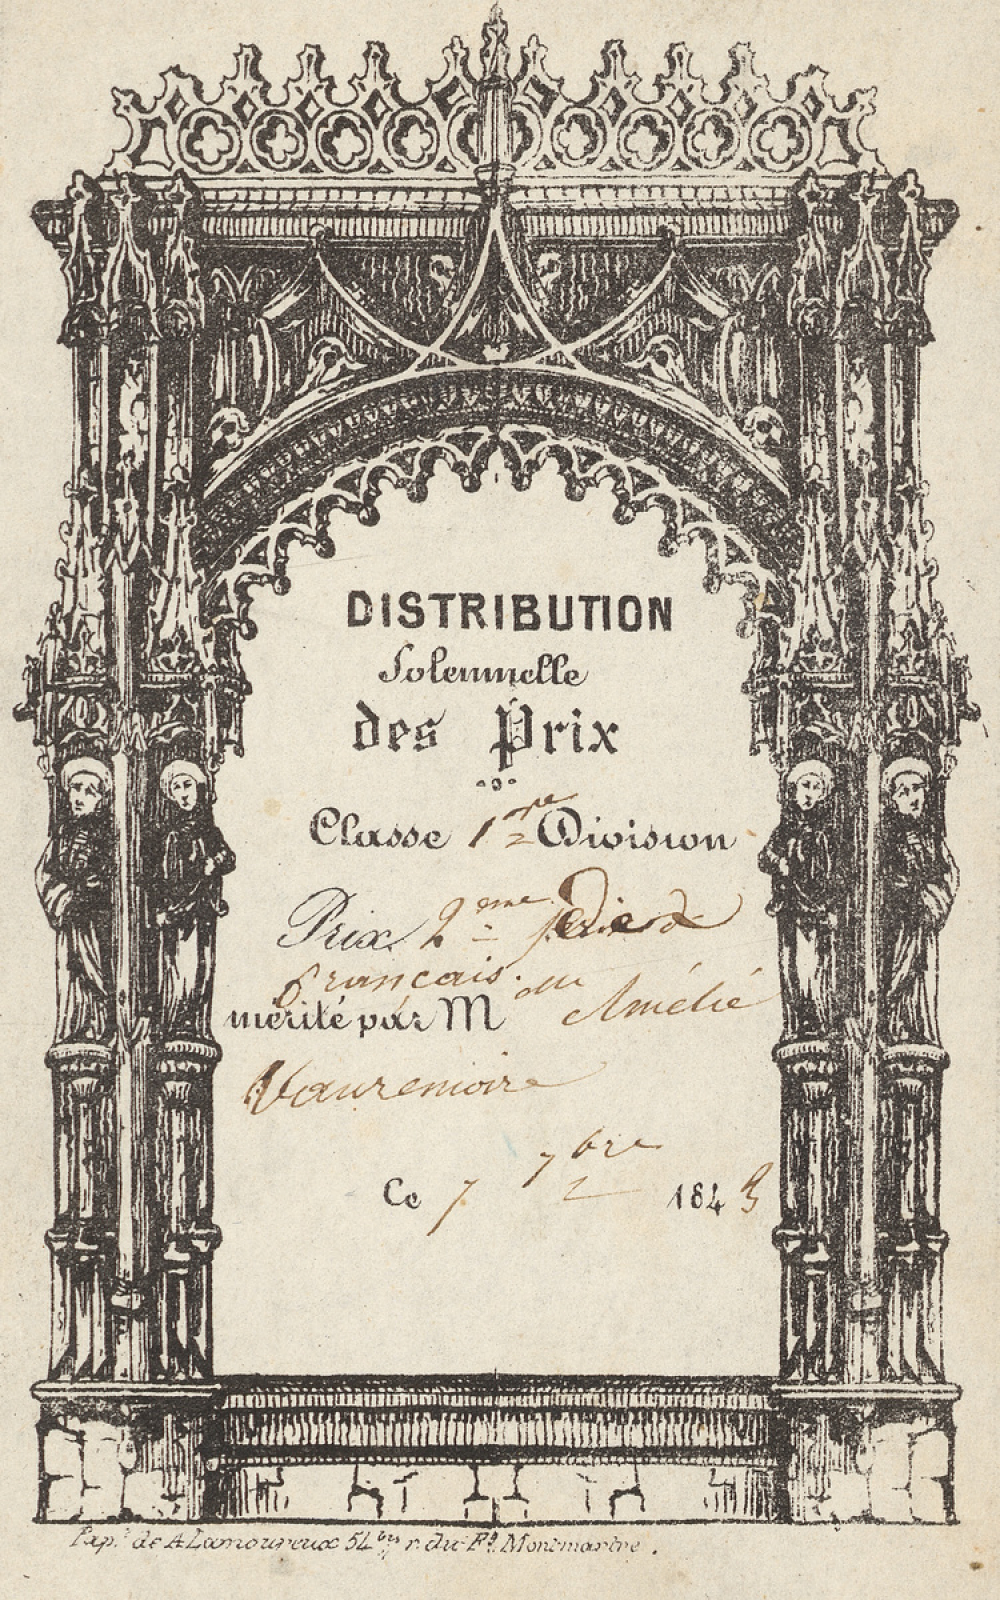 DISTRIBUTION
Solennelle
des Prix
Classe 1re Division
Prix 2eme
français.
mérité par M elle Amélie
Vauremoire
Ce 7 7bre 1843
Pap. de A Lamoureux 54 bis r. du Fg. Montmartre.